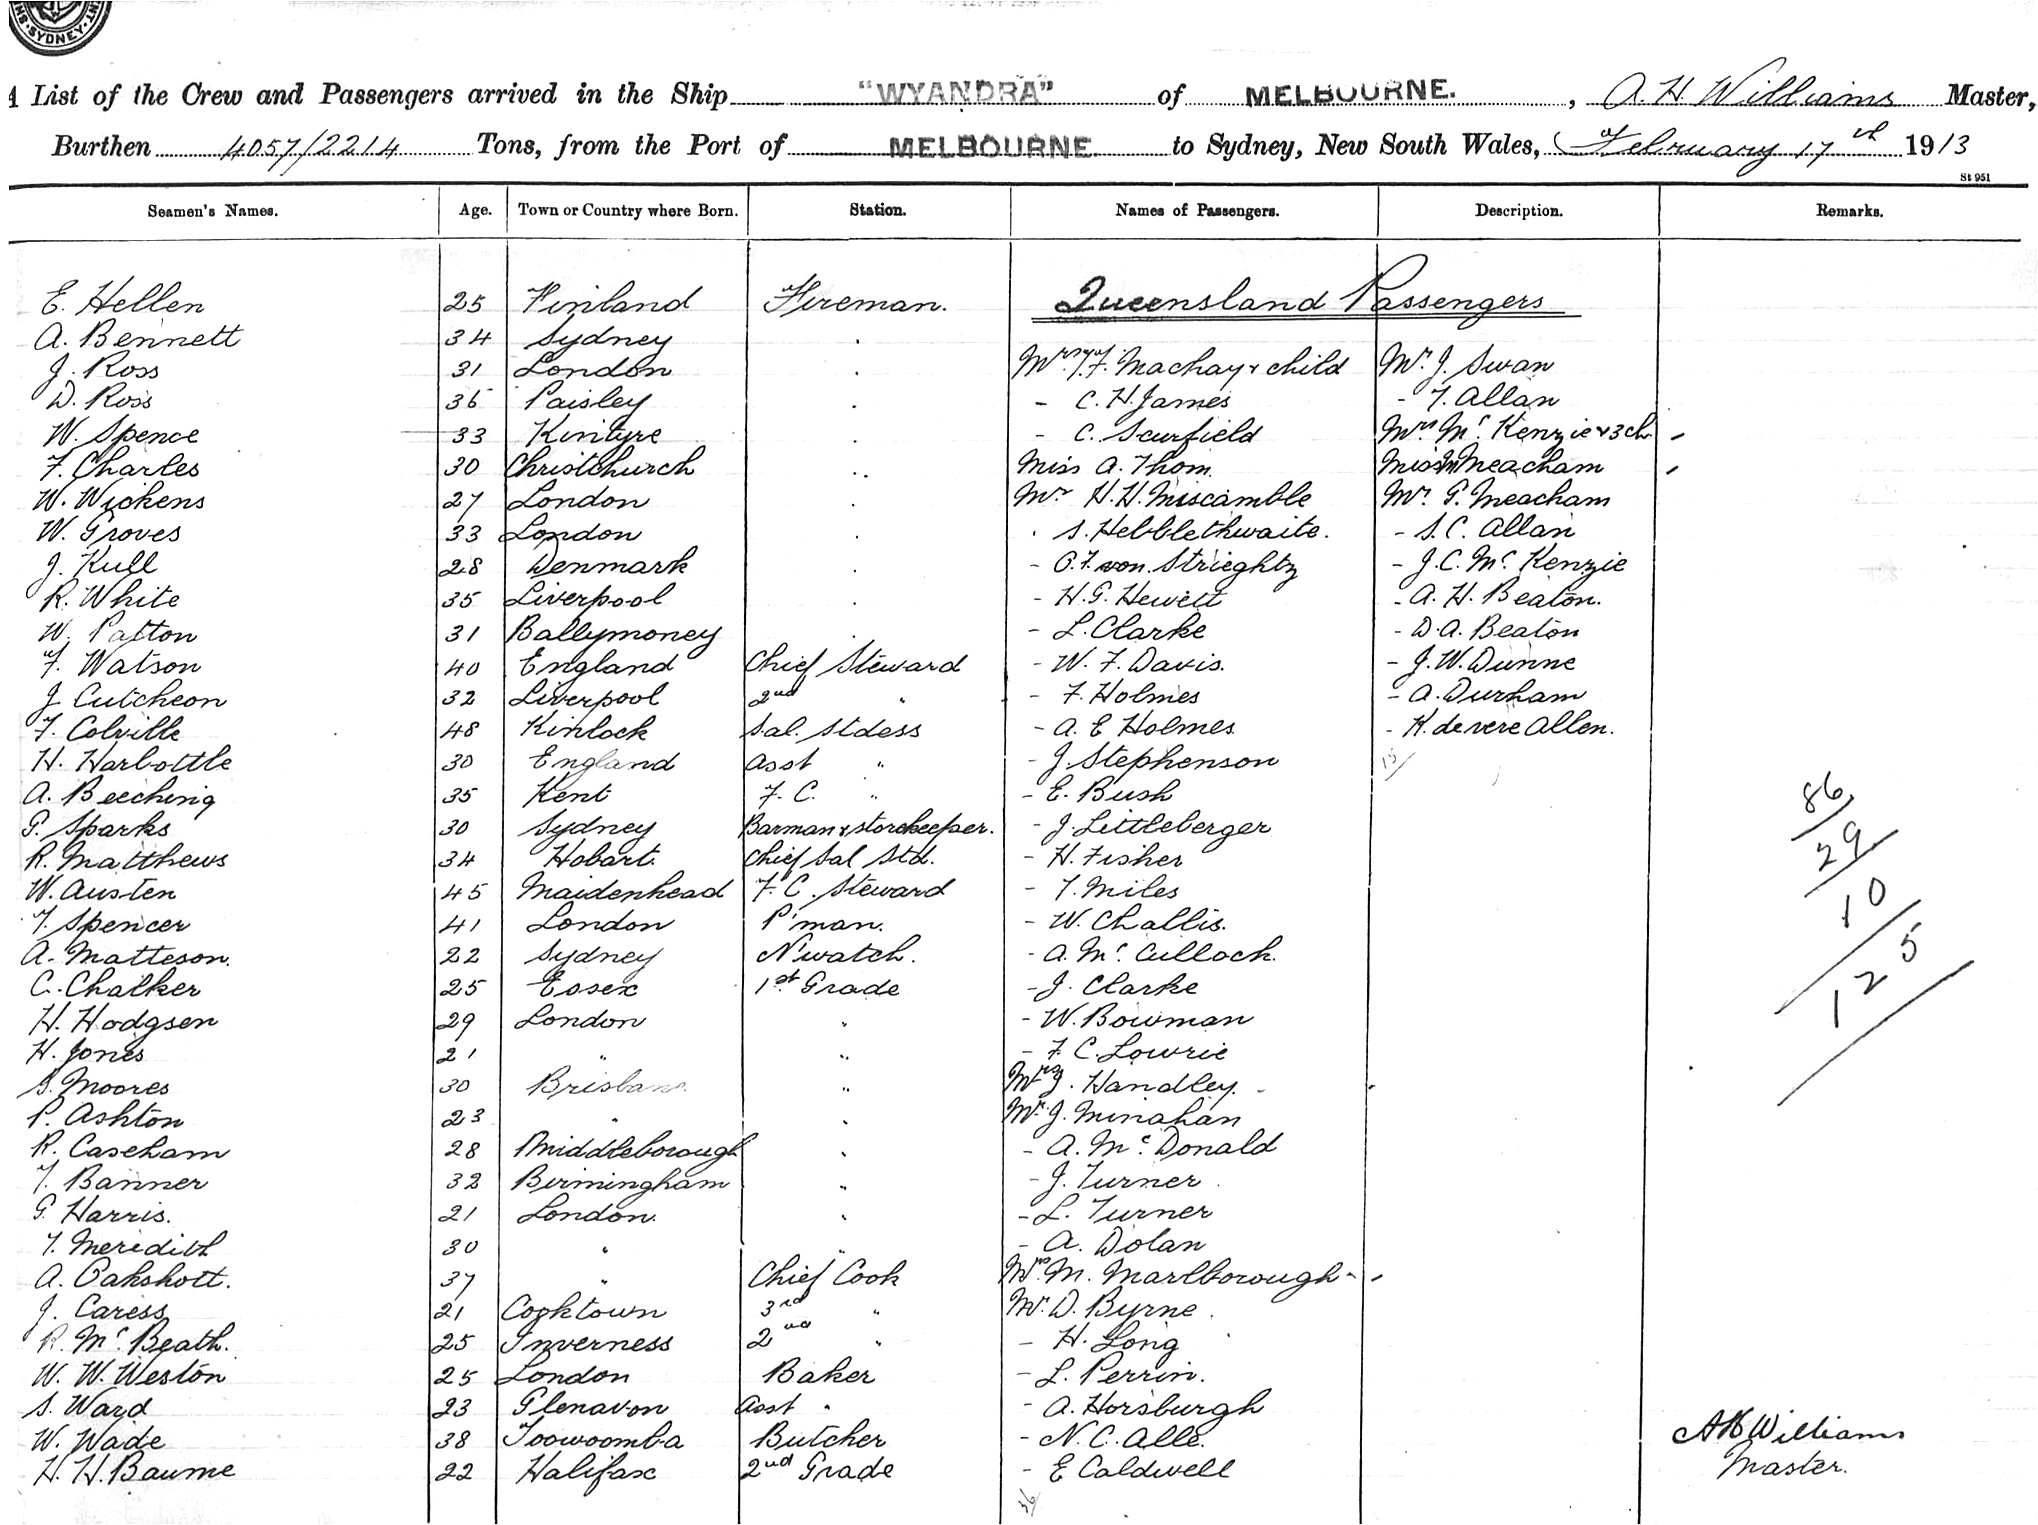 SYDNEY
List of the Crew and Passengers arrived in the Ship "WYANDRA" of MELBOURNE. , A. H. Williams Master,
Burthen 4057/2214 Tons, from the Port of MELBOURNE to Sydney, New South Wales, February 17th 1913
St 951
Seamen's Names. Age. Town or Country where Born. Station. Names of Passengers. Description. Remarks.
E. Hellen 25 Finland Fireman. Queensland Passengers
A. Bennett 34 Sydney .
J. Ross 31 London . F. Machay & child Mr. J. Swan
D. Ross 36 Paisley . - C. H. James - T. Allan
W. Spence 33 Kintyre . - C. Scurfield Mrs Mc Kenzie & 3 ch.
F. Charles 30 Christchurch . Miss A. Thom Miss M Meacham
W. Wickens 27 London . Mr H. H. Miscamble Mr. G. Meacham
W. Groves 33 London . . S. Hebblethwaite. - S. C. Allan
J. Kull 28 Denmark . - von Strieghtz - J. C. Mc Kenzie
R. White 35 Liverpool . - H. G. Hewett - A. H. Beaton.
W. Patton 31 Ballymoney . - L. Clarke - D. A. Beaton
F. Watson 40 England Chief Steward - W. F. Davis. - J. W. Dunne
J Cutcheon 32 Liverpool 2nd " - F. Holmes - A. Durham
F. Colville 48 Kinlock Sal. Stdess - A. E Holmes - K. de vere Allen.
H. Harbottle 30 England Asst " - J. Stephenson 15/
A. Beeching 35 Kent F. C. " - E. Bush
G. Sparks 30 Sydney Barman & Storekeeper. - J. Littleberger 86
R. Matthews 34 Hobart. Chief Sal Std. - H. Fisher 29
W. Austen 45 Maidenhead F. C. Steward - T. Miles 10
T. Spencer 41 London P'man. - W. Challis.
A. Matteson. 22 Sydney N'watch. - A. Mc Culloch. 125
C. Chalker 25 Essex 1st Grade - J. Clarke
H. Hodgsen 29 London " - W. Bowman
H. Jones 21 " " - F. C. Lowrie
S. Moores 30 Brisbane " Mrs J. Handley.
P. Ashton 23 " " Mr. J. Minahan
R. Caseham 28 Middleborough " - A. Mc Donald
T. Banner 32 Birmingham " - J. Turner
G. Harris. 21 London. " - L. Turner
T. Meredith 30 " " - A. Dolan
A. Oakshott. 37 " Chief Cook Mrs M. Marlborough
J. Caress 21 Cooktown 3rd " Mr. D. Byrne
R. Mc Beath. 25 Inverness 2nd " - H. Long
W. W. Weston 25 London Baker - L. Perrin.
S. Ward 23 Glenavon Asst " - A. Horsburgh
W. Wade 38 Toowoomba Butcher - N. C. Alle. A H Williams
H. H. Baume 22 Halifax 2nd Grade - E Caldwell Master.
36/